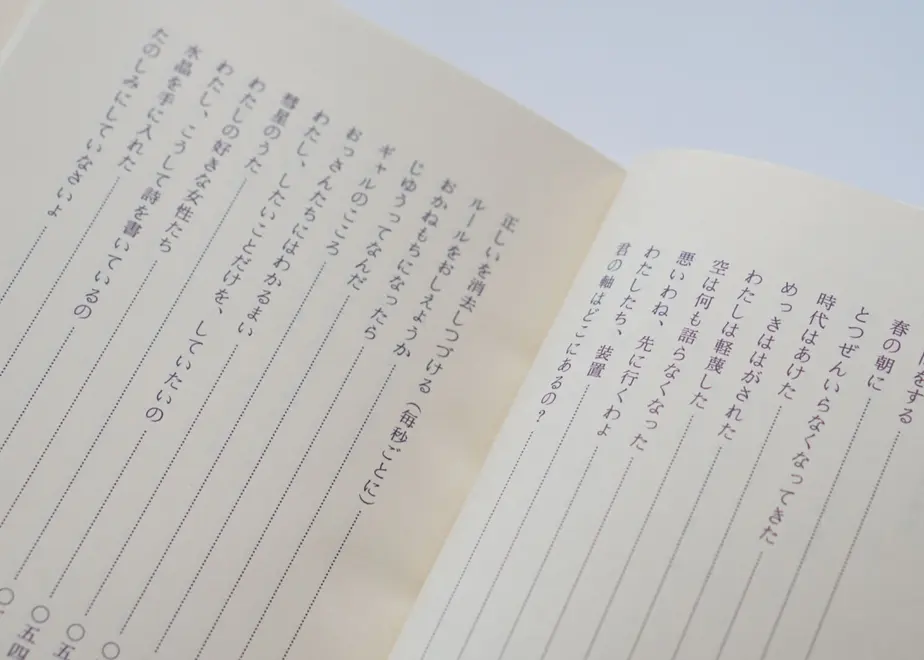 をする
春の朝に
とつぜんいらなくなってきた
時代はあけた
めっきははがされた
わたしは軽蔑した
空は何も語らなくなった
悪いわね、先に行くわよ
わたしたち、装置
君の軸はどこにあるの?
正しいを消去しつづける(毎秒ごとに)
ルールをおしえようか
おかねもちになったら
じゆうってなんだ
ギャルのこころ
おっさんたちにはわかるまい
わたし、したいことだけを、していたいの
彗星のうた
わたしの好きな女性たち 〇
わたし、こうして詩を書いているの 〇五
水晶を手に入れた 〇五四
たのしみにしていなさいよ 〇